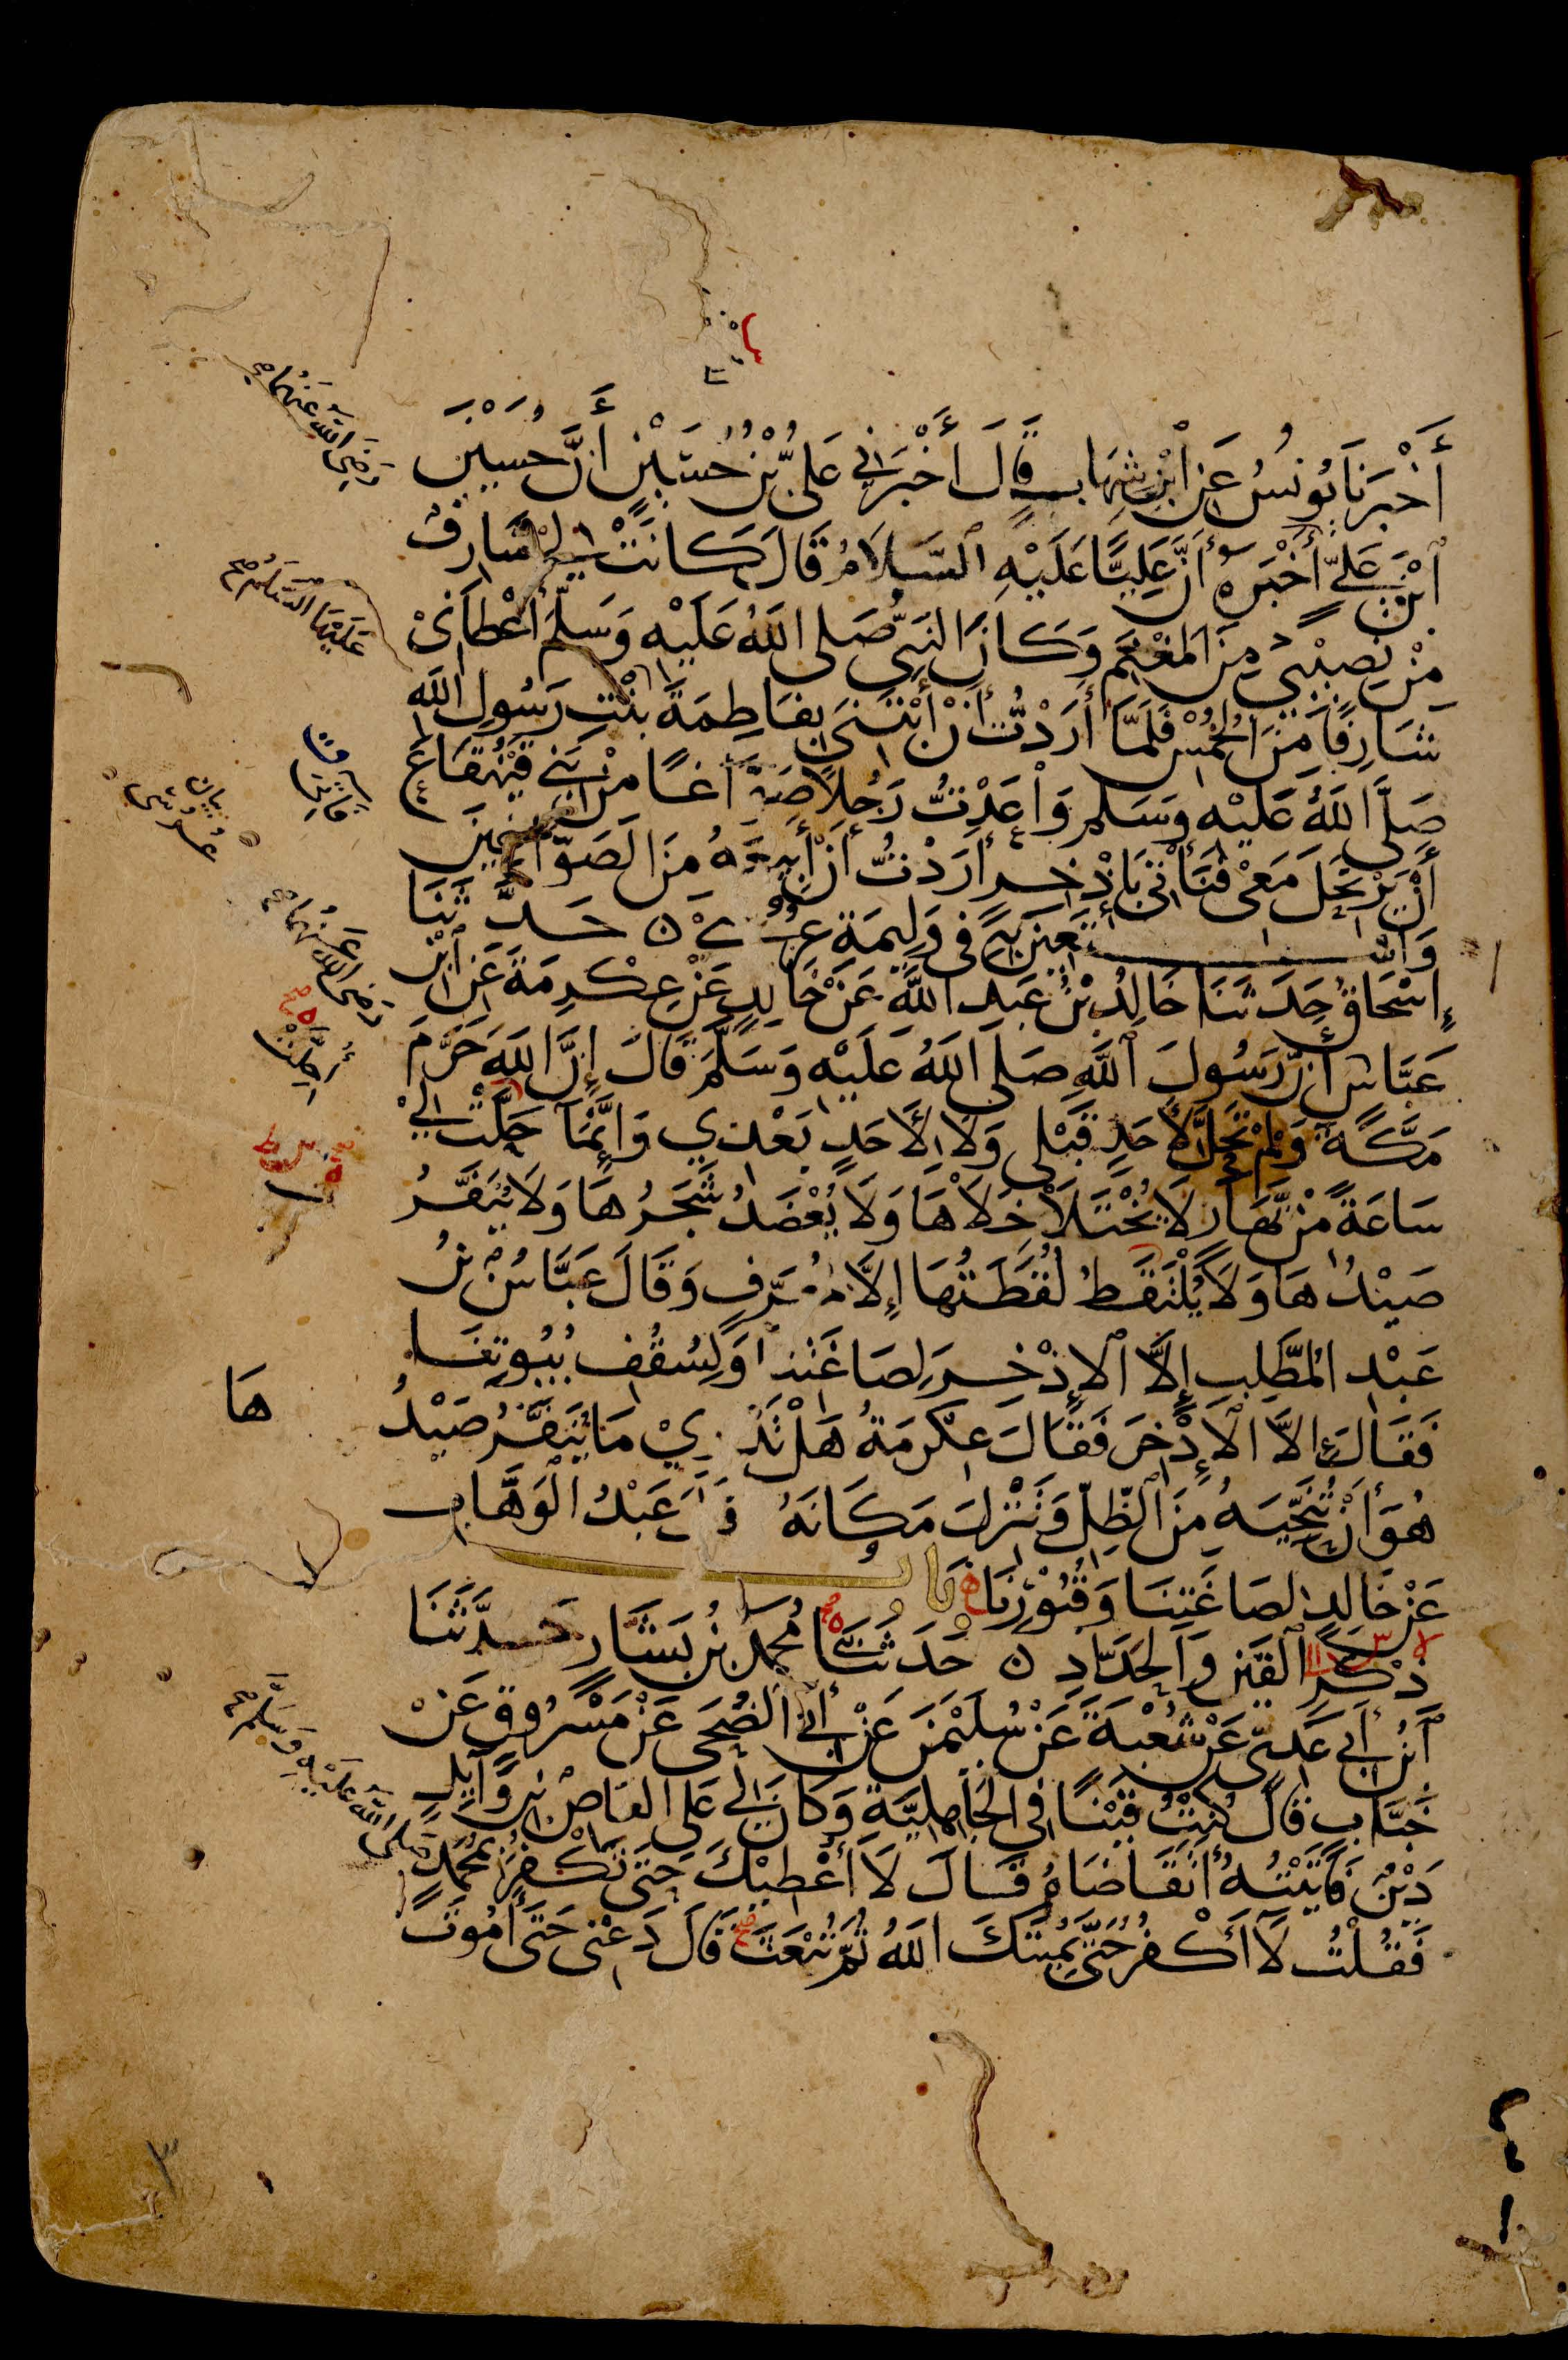 أَخْبَرَنَا يُونُسُ عَنِ ٱبْنِ شِهَابٍ قَالَ أَخْبَرَنِي عَلِيُّ بْنُ حُسَيْنٍ أَنَّ حُسَيْنَ
ٱبْنَ عَلِيٍّ أَخْبَرَهُ أَنَّ عَلِيًّا عَلَيْهِ ٱلسَّلَامُ قَالَ كَانَتْ لِي شَارِفٌ
مِنْ نَصِيبِي مِنَ الْمَغْنَمِ وَكَانَ النَّبِيُّ صَلَى اللَّهُ عَلَيْهِ وَسَلَّمَ أَعْطَانِي
شَارِفًا مِنَ الْخُمُسْ فَلَمَّا أَرَدْتُّ أَنْ أَبْتَنِيَ بِفَاطِمَةَ بِنْتِ رَسُولِ اللَّهِ
صَلَّى اللَّهُ عَلَيْهِ وَسَلَّم وَاعَدْتُّ رَجُلًا صَوَّاغًا مِنْ بَنِي قَيْنُقَاعَ
أَنْ يَرْتَحِلَ مَعِي فَنَأْتِيَ بِإِذْخِرٍ أَرَدْتُّ أَنْ أَبِيعَهُ مِنَ الصَّوَّاغِينَ
وَأَسْتَعِينَ بِهِ فِي وَلِيمَةِ عُرُسِي ۝ حَدَّثَنَا
إِسْحَاقُ حَدَثَنَا خَالِدُ بْنُ عَبْدِ اللَّهِ عَنْ خَالِدٍ عَنْ عِكْرِمَةَ عَنِ ٱبْنِ
عَبَّاسٍ أَنَّ رَسُولَ ٱللَّهِ صَلَى اللَّهُ عَلَيْهِ وَسَلَّمَ قَالَ إِنَّ اللَّهَ حَرَّمَ
مَكَّةَ وَلَمْ تَحِلَّ لِأَحَدٍ قَبْلِي وَلَا لِأَحَدٍ بَعْدِي وَإِنَّمَا حَلَّتْ لِيْ
سَاعَةً مِنْ نَّهَارٍ لَا يُخْتَلَا خَلَاهَا وَلَا يُعْضَدُ شَجَرُهَا وَلَا يُنَفَّرُ
صَيْدُهَا وَلَا يُلْتَقَطُ لُقَطَتُهَا إِلَّا لِمُعَرِّفٍ وَقَالَ عَبَّاسُ بْنُ
عَبْدِ الْمُطَّلِبِ إِلَّا ٱلْإِذْخِرَ لِصَاغَتِنَا وَلِسُقُفِ بُيُوتِنَا
فَقَالَ إِلَّا ٱلْإِذْخِرَ فَقَالَ عِكْرِمَةُ هَلْ تَدْرِيْ مَا يُنَفَّرُ صَيْدُ
هَا
هُوَ أَنْ تُنَحِّيَهُ مِنَ ٱلظِّلِّ وَتَنْزِلَ مَكَانَهُ قَالَ عَبْدُ الْوَهَّابِ
عَنْ خَالِدٍ لِصَاغَتِنَا وَقُبُورِنَا بَابُ
ذِكْرِ ٱلْقَيْنِ وَالْحَدَّادِ ۝ حَدَثَنَا مُحَمَّدُ بْنُ بَشَّارٍ حَدَّثَنَا
ٱبْنُ أَبِي عَدِيٍّ عَنْ شُعْبَةَ عَنْ سُلَيْمٰنَ عَنْ أَبِي الضُّحَى عَنْ مَسْرُوقٍ عَنْ
خَبَّابٍ قَالَ كُنْتُ قَيْنًا فِي الْجَاهِلِيَّةِ وَكَانَ لِي عَلَى الْعَاصِ بْنِ وَائِلٍ
دَيْنٌ فَأَتَيْتُهُ أَتَقَاضَاهُ قَالَ لَا أُعْطِيكَ حَتَّى تَكْفُرَ بِمُحَمَّدٍ
فَقُلْتُ لَا أَكْفُرُ حَتَّى يُمِيتَكَ اللَّهُ ثُمَّ تُبْعَثَ قَالَ دَعْنِي حَتَّى أَمُوتَ
رَضِيَ اللَّهُ عَنْهُمَا
عَلَيْهِمَا السَّلَامُ
رَضِيَ اللَّهُ عَنْهُمَا
أُحِلَّتْ
صَلَّى اللَّهُ عَلَيْهِ وَسَلَّمَ